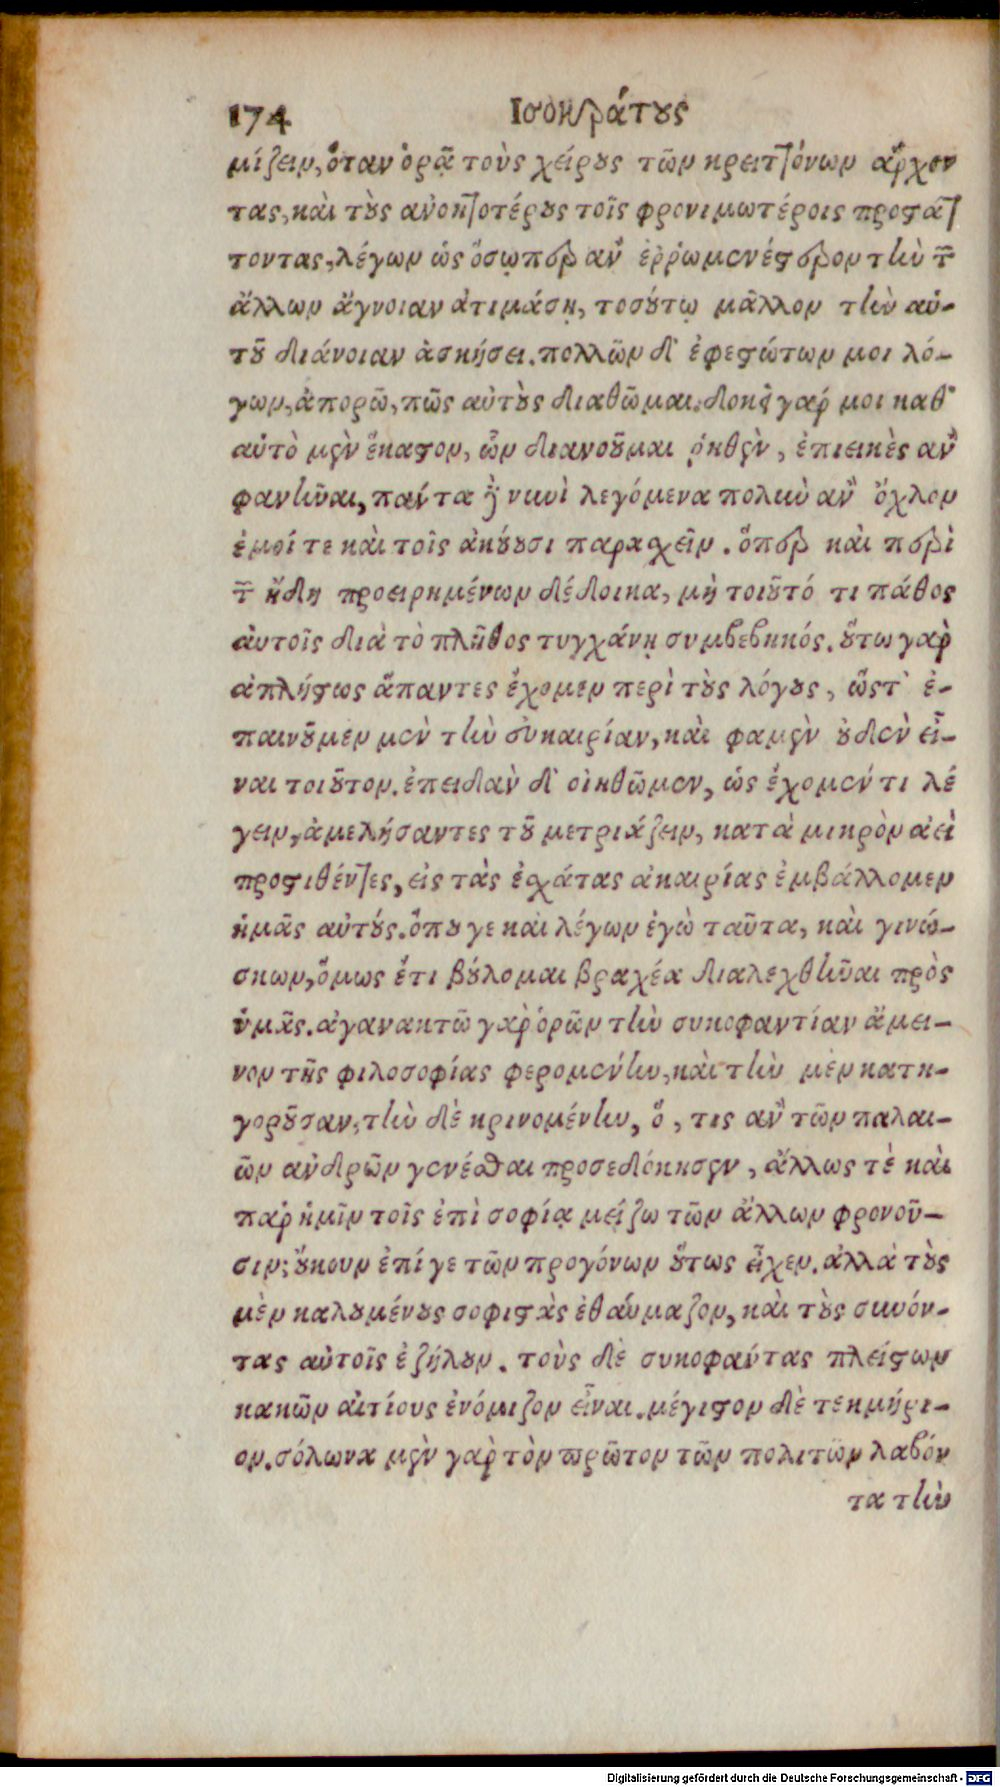 174 Ισοκράτους
μίζειν, ὅταν ὁρᾷ τοὺς χείρους τῶν κρειττόνων ἄρχον
τας, καὶ τοὺς ἀνοητοτέρους τοῖς φρονιμωτέροις προστάτ
τοντας, λέγων ὡς ὅσῳπερ ἂν ἐῤῥωμενέστερον τὴν τῶν
ἄλλων ἄγνοιαν ἀτιμάσῃ, τοσούτῳ μᾶλλον τὴν αὑ-
τοῦ διάνοιαν ἀσκήσει. πολλῶν δ' ἐφεστώτων μοι λό-
γων, ἀπορῶ, πῶς αὐτοὺς διαθῶμαι. δοκεῖ γάρ μοι καθ'
αὐτὸ μὲν ἕκαστον, ὧν διανοοῦμαι ῥηθὲν, ἐπιεικὲς ἂν
φανῆναι, πάντα δὲ νυνὶ λεγόμενα πολὺν ἂν ὄχλον
ἐμοί τε καὶ τοῖς ἀκούουσι παρασχεῖν. ὅπερ καὶ περὶ
τῶν ἤδη προειρημένων δέδοικα, μὴ τοιοῦτό τι πάθος
αὐτοῖς διὰ τὸ πλῆθος τυγχάνῃ συμβεβηκός. οὕτω γὰρ
ἀπλήστως ἅπαντες ἔχομεν περὶ τοὺς λόγους, ὥστ' ἐ-
παινοῦμεν μὲν τὴν εὐκαιρίαν, καὶ φαμὲν οὐδὲν εἶ-
ναι τοιοῦτον. ἐπειδὰν δ' οἰηθῶμεν, ὡς ἔχομέν τι λέ
γειν, ἀμελήσαντες τοῦ μετριάζειν, κατὰ μικρὸν ἀεὶ
προστιθέντες, εἰς τὰς ἐσχάτας ἀκαιρίας ἐμβάλλομεν
ἡμᾶς αὐτούς. ὅπου γε καὶ λέγων ἐγὼ ταῦτα, καὶ γινώ-
σκων, ὅμως ἔτι βούλομαι βραχέα διαλεχθῆναι πρὸς
ὑμᾶς. ἀγανακτῶ γὰρ ὁρῶν τὴν συκοφαντίαν ἄμει-
νον τῆς φιλοσοφίας φερομένην, καὶ τὴν μὲν κατη-
γοροῦσαν, τὴν δὲ κρινομένην, ὅ, τις ἂν τῶν παλαι-
ῶν ἀνδρῶν γενέσθαι προσεδόκησεν, ἄλλως τὲ καὶ
παρ' ἡμῖν τοῖς ἐπὶ σοφίᾳ μείζω τῶν ἄλλων φρονοῦ-
σιν; οὔκουν ἐπί γε τῶν προγόνων οὕτως εἶχεν. ἀλλὰ τοὺς
μὲν καλουμένους σοφιστὰς ἐθαύμαζον, καὶ τοὺς συνόν-
τας αὐτοῖς ἐζήλουν. τοὺς δὲ συκοφάντας πλείστων
κακῶν αἰτίους ἐνόμιζον εἶναι. μέγιστον δὲ τεκμήρι-
ον. σόλωνα μὲν γὰρ τὸν πρῶτον τῶν πολιτῶν λαβόν
τα τὴν
Digitalisierung gefördert durch die Deutsche Forschungsgemeinschaft - DFG